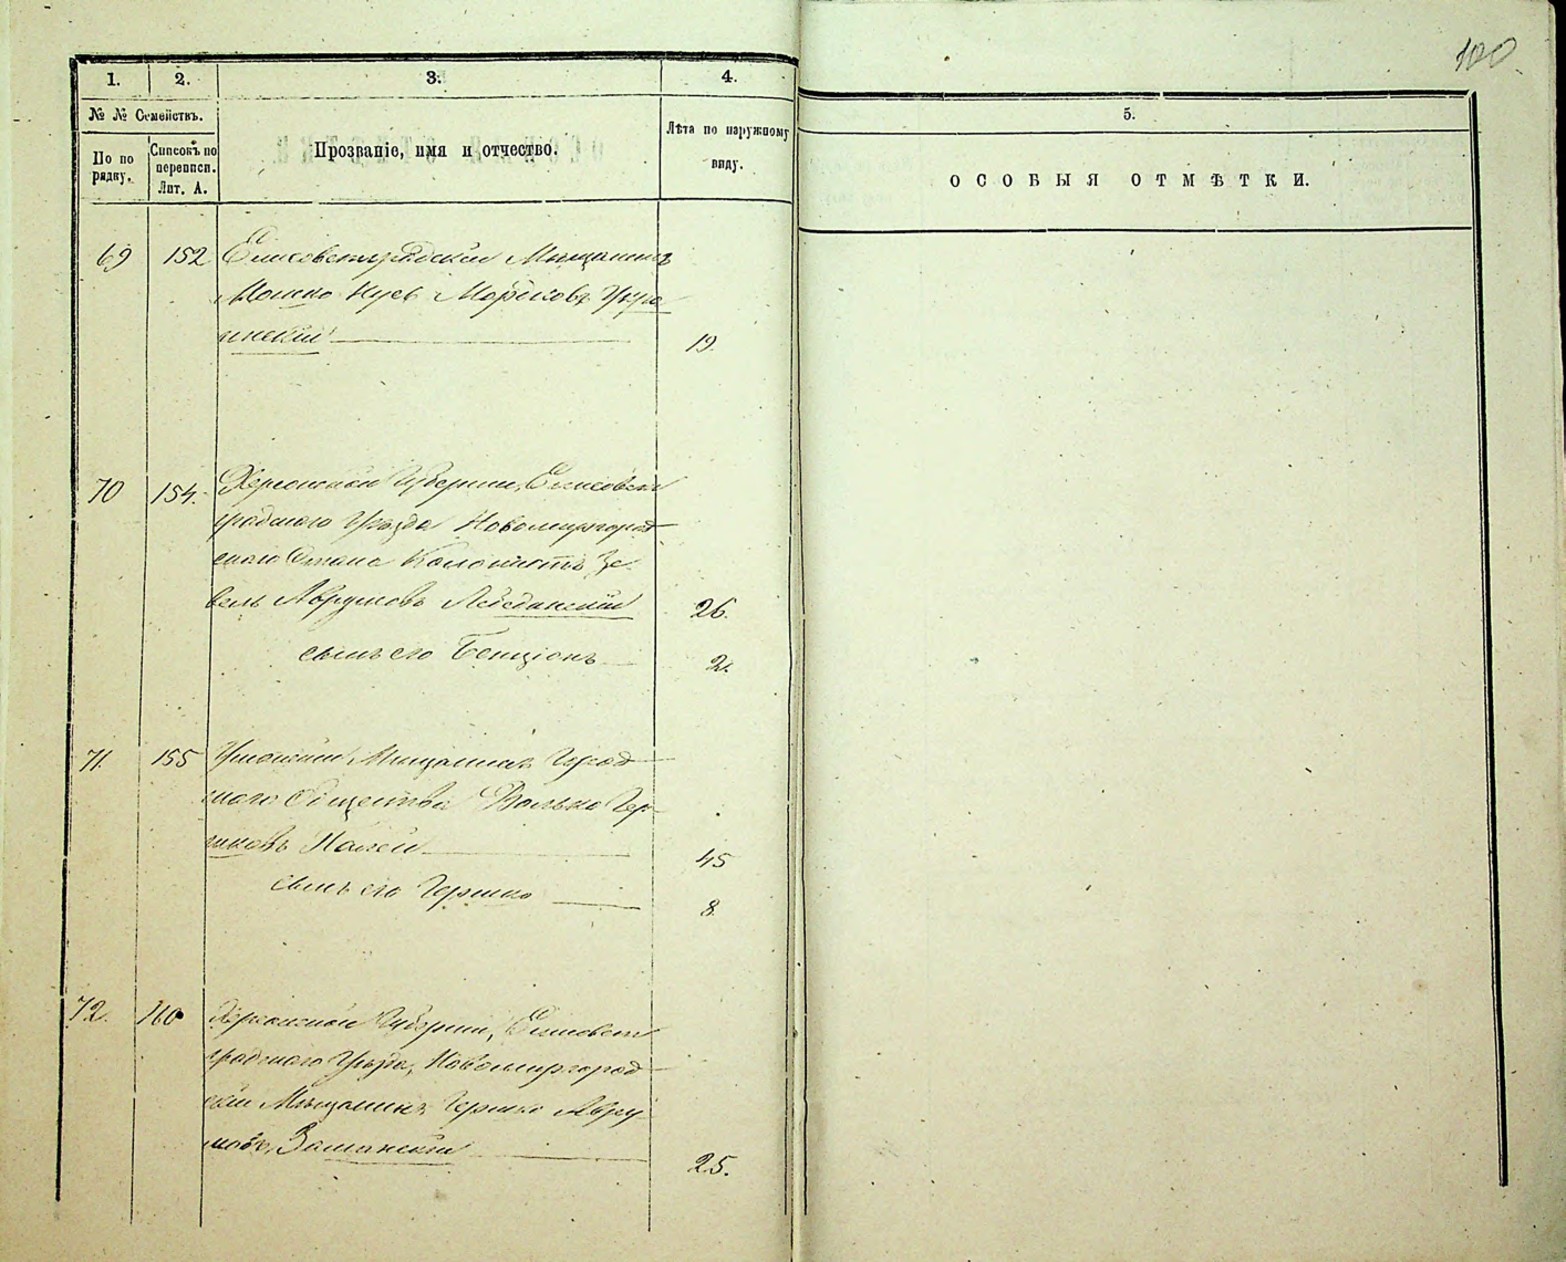 100
1.
2.
3.
4.
№ № Семействъ.
По порядку.
Списокъ по переписи. Лит. А.
Прозваніе, имя и отчество.
Лѣта по наружному виду.
5.
ОСОБЫЯ ОТМѢТКИ.
69 152 Елисаветградскій Мѣщанинъ
Мошко Нусь
инскій 19.
70 154. Херсонской Губерніи, Елисавет
градскаго Уѣзда Новомиргород
скаго Стана Колонистъ Зе
вель Аврумовъ Лебединскій 26.
сынъ его Бенціонъ 2.
71. 155 Уманскій Мѣщанинъ Город
скаго Общества Волько Гер
шковъ 45
сынъ его Гершко 8.
72. 160 Херсонской Губерніи, Елисавет
градскаго Уѣзда, Новомиргород
скій Мѣщанинъ Гершко Авру
мовъ 25.